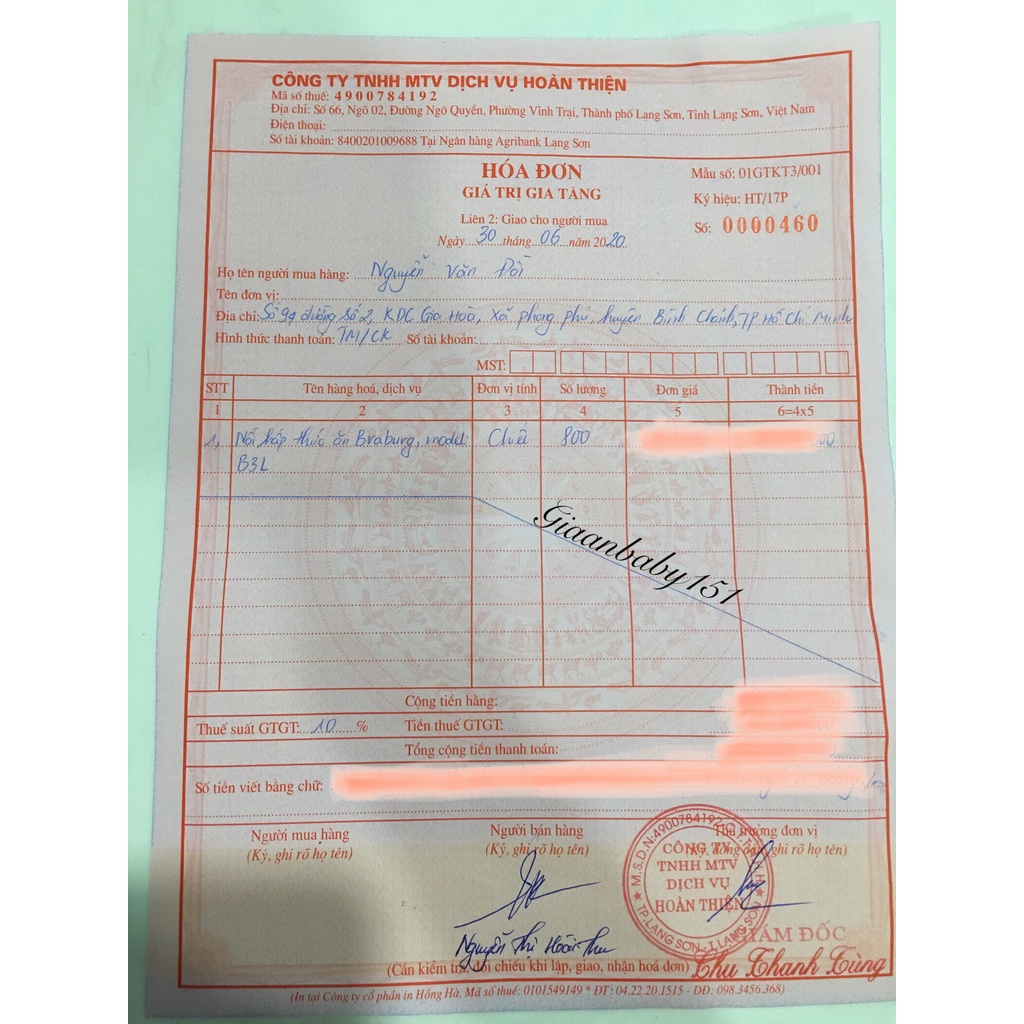 CÔNG TY TNHH MTV DỊCH VỤ HOÀN THIỆN
Mã số thuế: 4900784192
Địa chỉ: Số 66, Ngõ 02, Đường Ngô Quyền, Phường Vĩnh Trại, Thành phố Lạng Sơn, Tỉnh Lạng Sơn, Việt Nam
Điện thoại:
Số tài khoản: 8400201009688 Tại Ngân hàng Agribank Lạng Sơn
HÓA ĐƠN
GIÁ TRỊ GIA TĂNG
Liên 2: Giao cho người mua
Ngày 30 tháng 06 năm 2020
Mẫu số: 01GTKT3/001
Ký hiệu: HT/17P
Số: 0000460
Họ tên người mua hàng: Nguyễn Văn
Tên đơn vị:
Địa chỉ: Số 94 đường số 2, KDC Gia Hoà, xã phong phú, huyện Bình Chánh, TP Hồ Chí Minh
Hình thức thanh toán: TM/CK Số tài khoản:
MST:
STT Tên hàng hoá, dịch vụ Đơn vị tính Số lượng Đơn giá Thành tiền
1 2 3 4 5 6=4x5
1, Nồi hấp thức ăn Braburg, model: Chiếc 800
B3L
Giaanbaby151
Cộng tiền hàng:
Thuế suất GTGT: 10 % Tiền thuế GTGT:
Tổng cộng tiền thanh toán:
Số tiền viết bằng chữ:
Người mua hàng Người bán hàng Thủ trưởng đơn vị
(Ký, ghi rõ họ tên) (Ký, ghi rõ họ tên) (Ký, đóng dấu, ghi rõ họ tên)
M.S.D.N: 4900784192
CÔNG TY
TNHH MTV
DỊCH VỤ
HOÀN THIỆN
TP.LẠNG SƠN - T.LẠNG SƠN
GIÁM ĐỐC
Nguyễn Thị Hoài Thu
Chu Thanh Tùng
(Cần kiểm tra, đối chiếu khi lập, giao, nhận hoá đơn)
(In tại Công ty cổ phần in Hồng Hà, Mã số thuế: 0101549149 * ĐT: 04.22.20.1515 - DĐ: 098.3456.368)